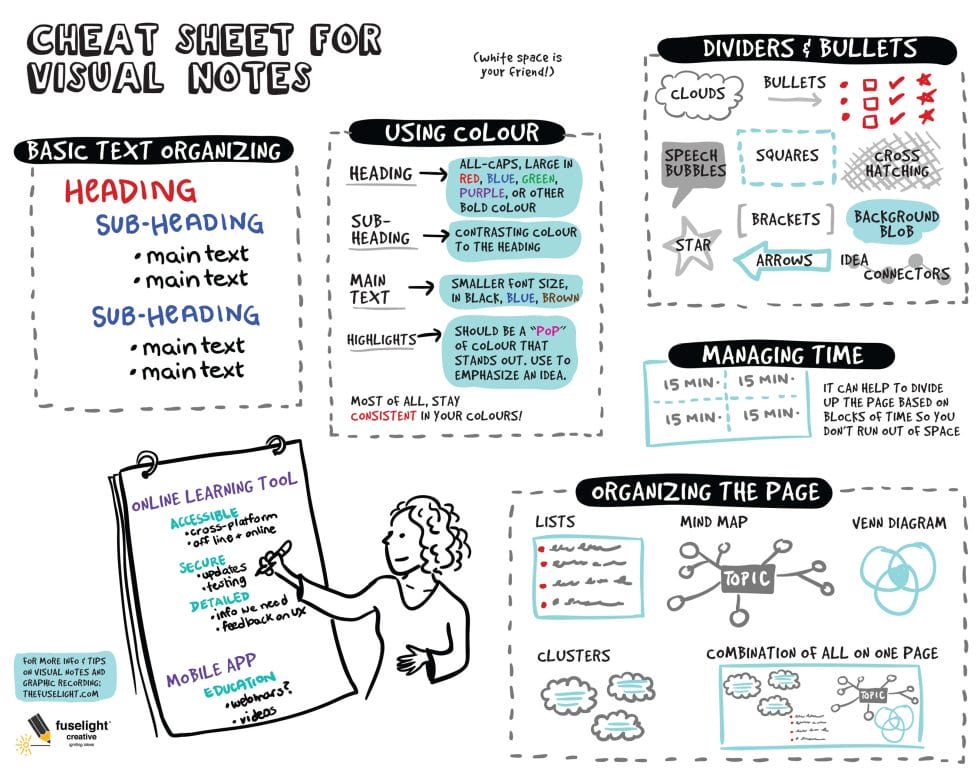 CHEAT SHEET FOR
VISUAL NOTES
(white space is
your friend!)
BASIC TEXT ORGANIZING
HEADING
SUB-HEADING
• main text
• main text
SUB-HEADING
• main text
• main text
USING COLOUR
HEADING
ALL-CAPS, LARGE IN
RED, BLUE, GREEN,
PURPLE, OR OTHER
BOLD COLOUR
SUB-
HEADING
CONTRASTING COLOUR
TO THE HEADING
MAIN
TEXT
SMALLER FONT SIZE,
IN BLACK, BLUE, BROWN
HIGHLIGHTS
SHOULD BE A "POP"
OF COLOUR THAT
STANDS OUT. USE TO
EMPHASIZE AN IDEA.
MOST OF ALL, STAY
CONSISTENT IN YOUR COLOURS!
DIVIDERS & BULLETS
CLOUDS
BULLETS
SPEECH
BUBBLES
SQUARES
CROSS
HATCHING
STAR
[BRACKETS]
BACKGROUND
BLOB
ARROWS
IDEA
CONNECTORS
MANAGING TIME
15 MIN. 15 MIN.
15 MIN. 15 MIN.
IT CAN HELP TO DIVIDE
UP THE PAGE BASED ON
BLOCKS OF TIME SO YOU
DON'T RUN OUT OF SPACE
ONLINE LEARNING TOOL
ACCESSIBLE
• cross-platform
• off line + online
SECURE
• updates
• testing
DETAILED
• info we need
• feedback on UX
MOBILE APP
EDUCATION
• webinars?
• videos
ORGANIZING THE PAGE
LISTS
MIND MAP
TOPIC
VENN DIAGRAM
CLUSTERS
COMBINATION OF ALL ON ONE PAGE
TOPIC
FOR MORE INFO & TIPS
ON VISUAL NOTES AND
GRAPHIC RECORDING:
THEFUSELIGHT.COM
fuselight
creative
igniting ideas